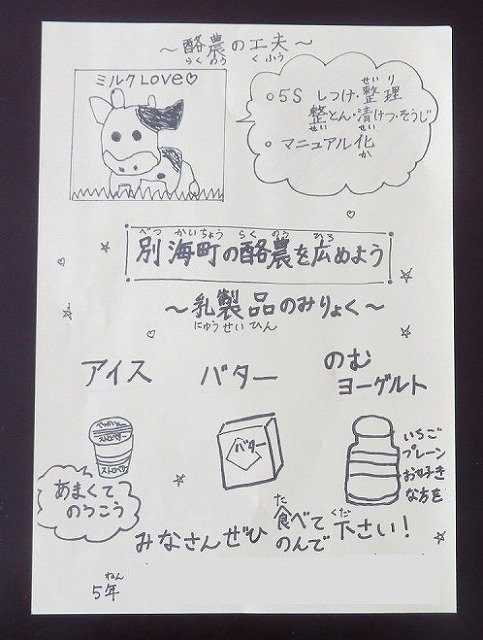 ～酪農の工夫～
らくのう くふう
ミルクLove♡
せいり
○5S しつけ・整理
整とん・清けつ・そうじ
せい せい
○マニュアル化
か
べつ かいちょう らく のう ひろ
別海町の酪農を広めよう
～乳製品のみりょく～
にゅうせいひん
アイス
バター
のむ
ヨーグルト
ストロベリー
ストロベリ
あまくて
のうこう
バター
いちご
プレーン
お好き
な方を
みなさんぜひ
た
食べて
のんで
くだ
下さい！
ねん
5年